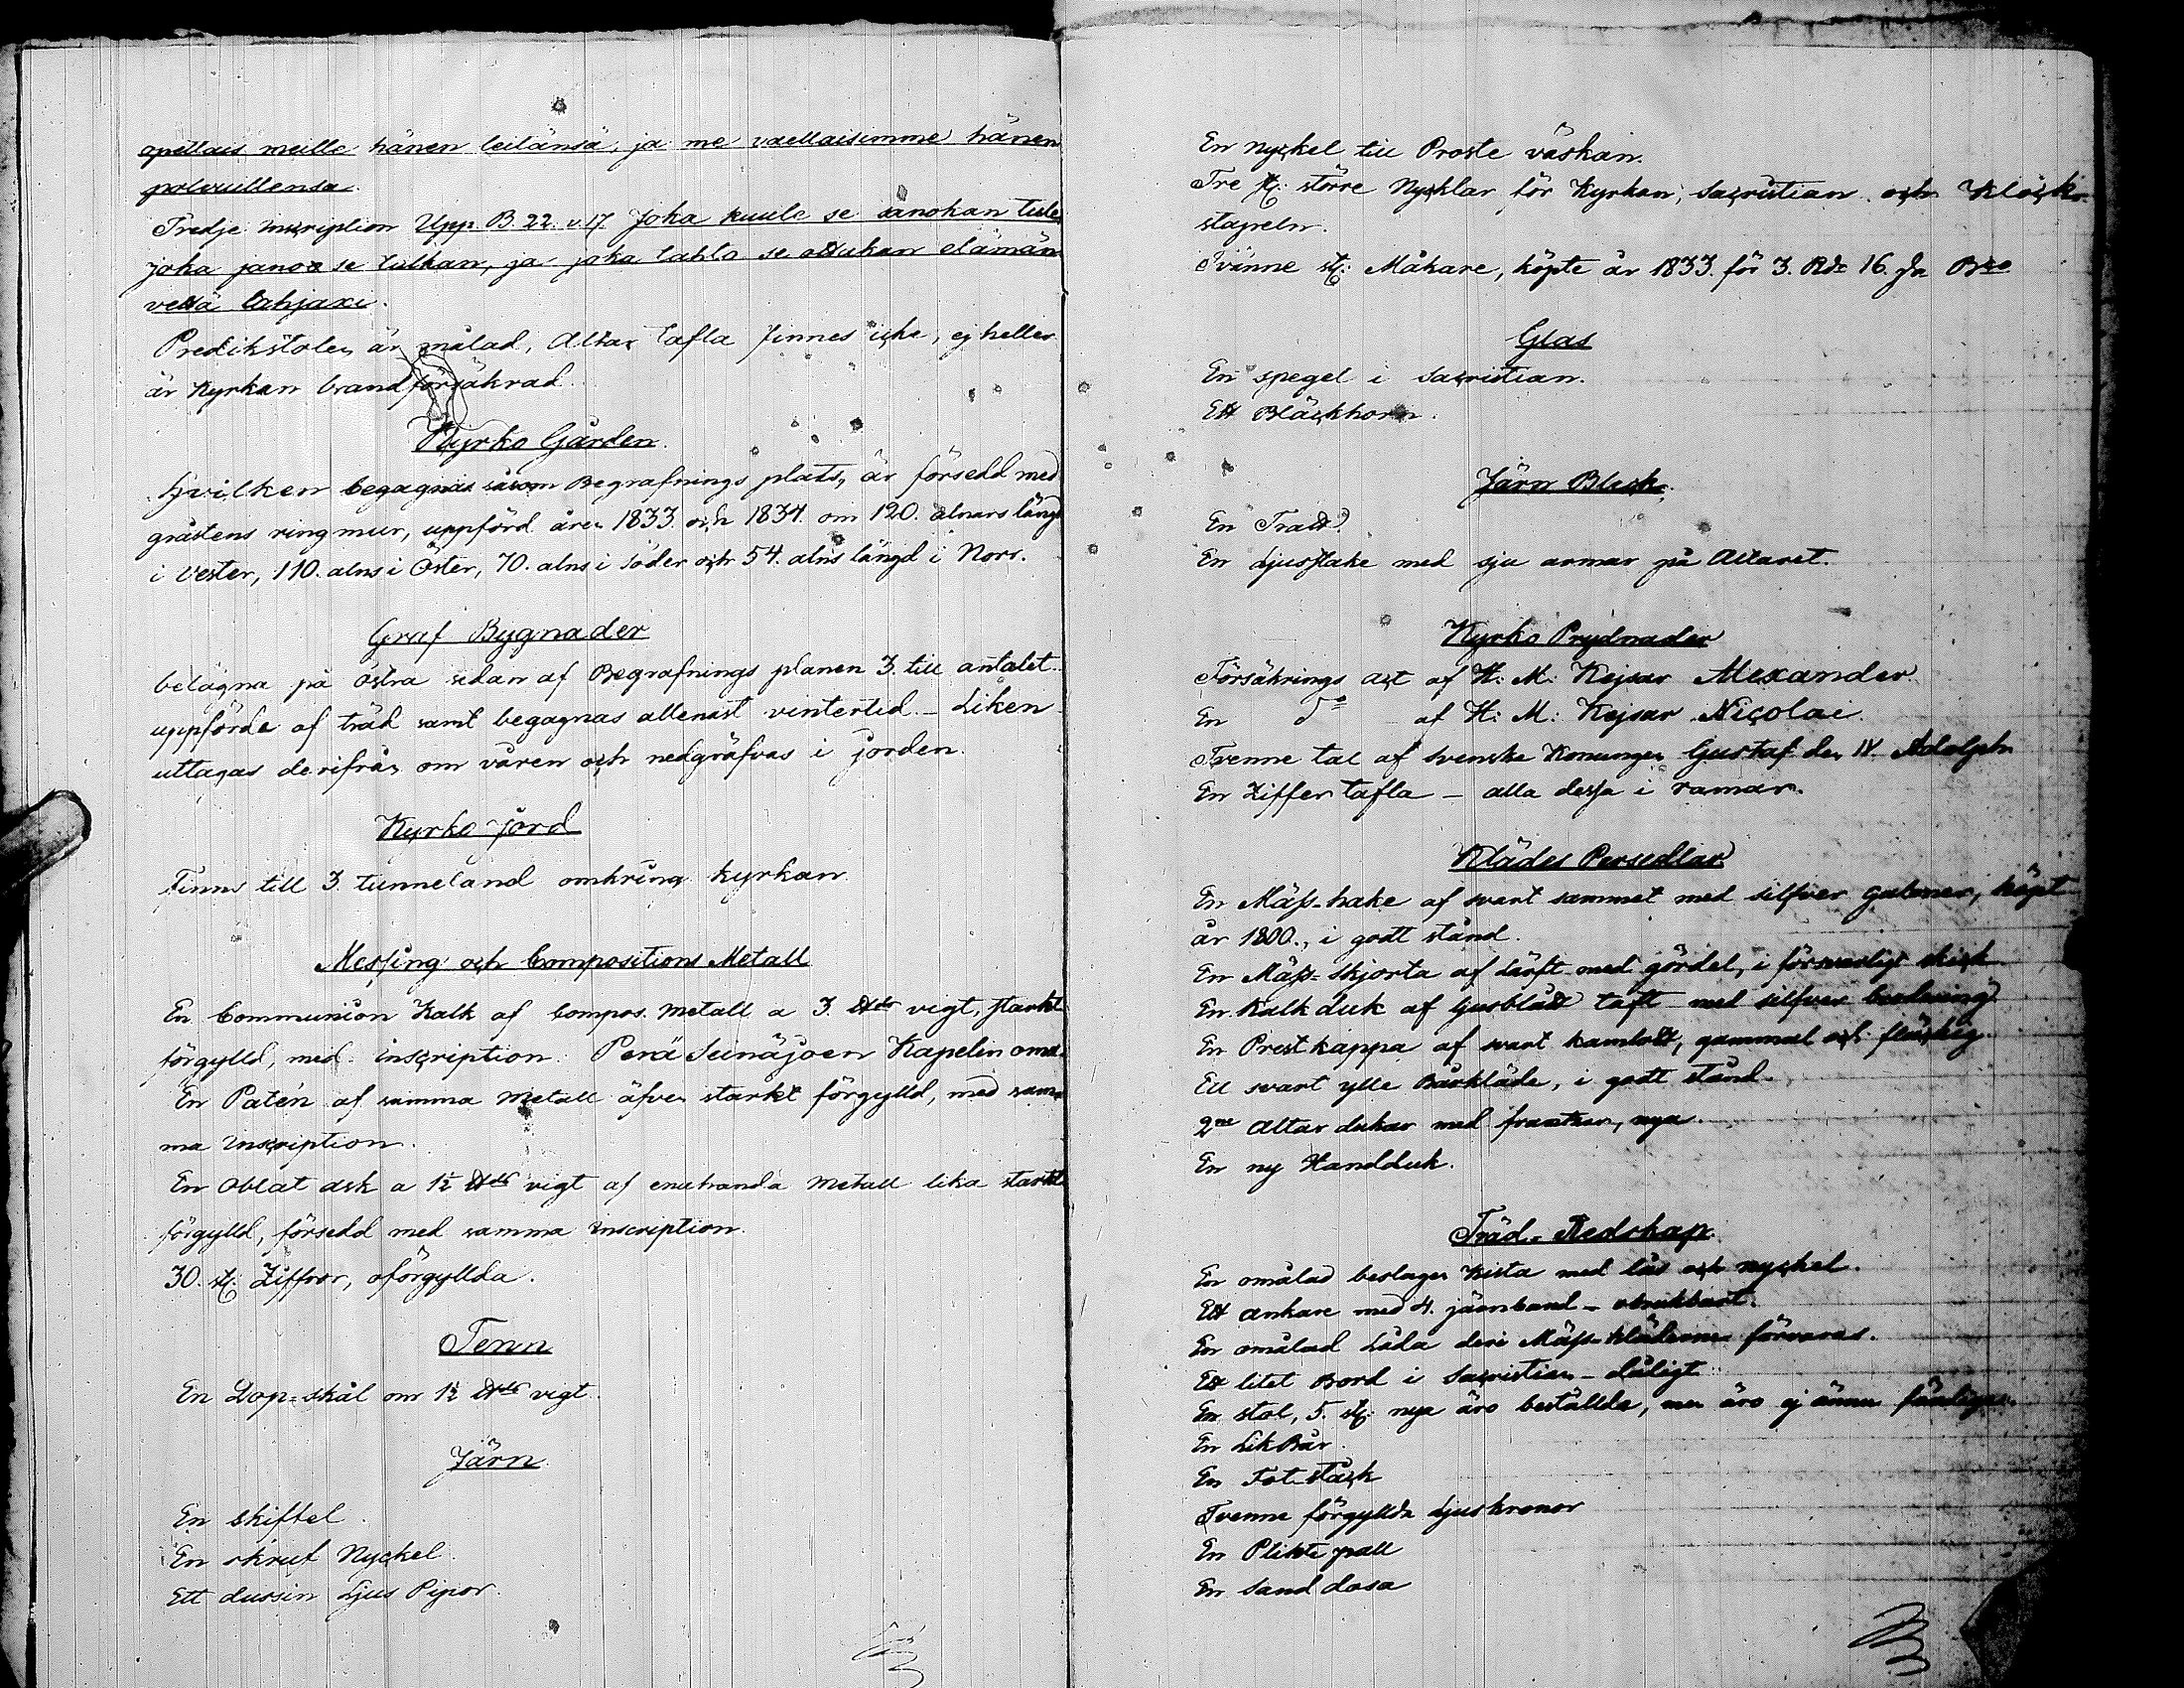 opettais meille hänen teitänsä, ja me vaellaisimme hänen
polwuillensa.
Tredje inscription Upp. B. 22. v. 17. Joka kuule se sanokan tule,
joka janoo se tulkan, ja joka tahto se ottakan elämän
vettä lahjaxi.
Predikstolen är målad, Altar tafla finnes icke, ej heller
är Kyrkan brandförsäkrad.
Kyrko Gården.
Hvilken begagnas såsom Begrafnings plats, är försedd med
gråstens ringmur, uppförd åren 1833. och 1834. om 120. alnars längd
i Vester, 110. alns i Öster, 70. alns i söder och 54. alns längd i Norr.
Graf Bygnader
belägna på östra sidan af Begrafnings planen 3. till antalet
uppförde af träd samt begagnas allenast vintertid. - Liken
uttagas derifrån om våren och nedgräfvas i jorden.
Kyrko jord
Finns till 3. tunneland omkring kyrkan.
Messing och Compositions Metall
En Communion Kalk af Compos. Metall a 3. vigt, starkt
förgylld, med inscription: Perä Seinäjoen Kapelin oma.
En Patén af samma Metall äfven starkt förgylld, med sam-
ma inscription.
En Oblat ask a 1½ vigt af enahanda Metall lika starkt
förgylld, försedd med samma inscription.
30. st: Ziffror, oförgyllda.
Tenn
En Dop-skål om 1½ vigt.
Järn
En skiftel.
En skruf Nyckel.
Ett dussin Ljus Pipor.
En nyckel till Proste väskan.
Tre st: större Nycklar för Kyrkan, Sacristian och Klock-
stapeln.
Tvänne st: Måkare, köpte år 1833. för 3. Rdr 16. Bco
Glas
En spegel i Sacristian.
Ett Bläckhorn.
Järn Bleck.
En Tratt.
En Ljusstake med sju armar på Altaret.
Kyrko Prydnader
Försäkrings act af H: M: Kejsar Alexander.
En do af H: M: Kejsar Nicolai.
Tvenne tal af svenske Konungen Gustaf den IV. Adolph
En Ziffer tafla - alla dessa i ramar.
Klädes Persedlar
En Mäss-hake af svart sammet med silfver galoner, köpt
år 1800., i godt stånd.
En Mäss-skjorta af lärft med gördel, i försvarligt skick
En Kalk duk af ljusblått taft med silfver brodering
En Prestkappa af svart kamlott, gammal och fläckig
Ett svart ylle Bårkläde, i godt stånd.
2ne Altar dukar med frantsar, nya.
En ny Handduk.
Träd-Redskap.
En omålad beslagen Kista med lås och nyckel.
Ett ankare med 4. järnband - obrukbart.
En omålad Låda deri Mäss-kläderne förvaras.
Ett litet Bord i Sacristian - dåligt
En stol, 5. st: nya äro beställda, men äro ej ännu färdiga.
En Lik Bår.
En Fot-stock
Tvenne förgyllda Ljuskronor
En Plikte pall
En Sand dosa